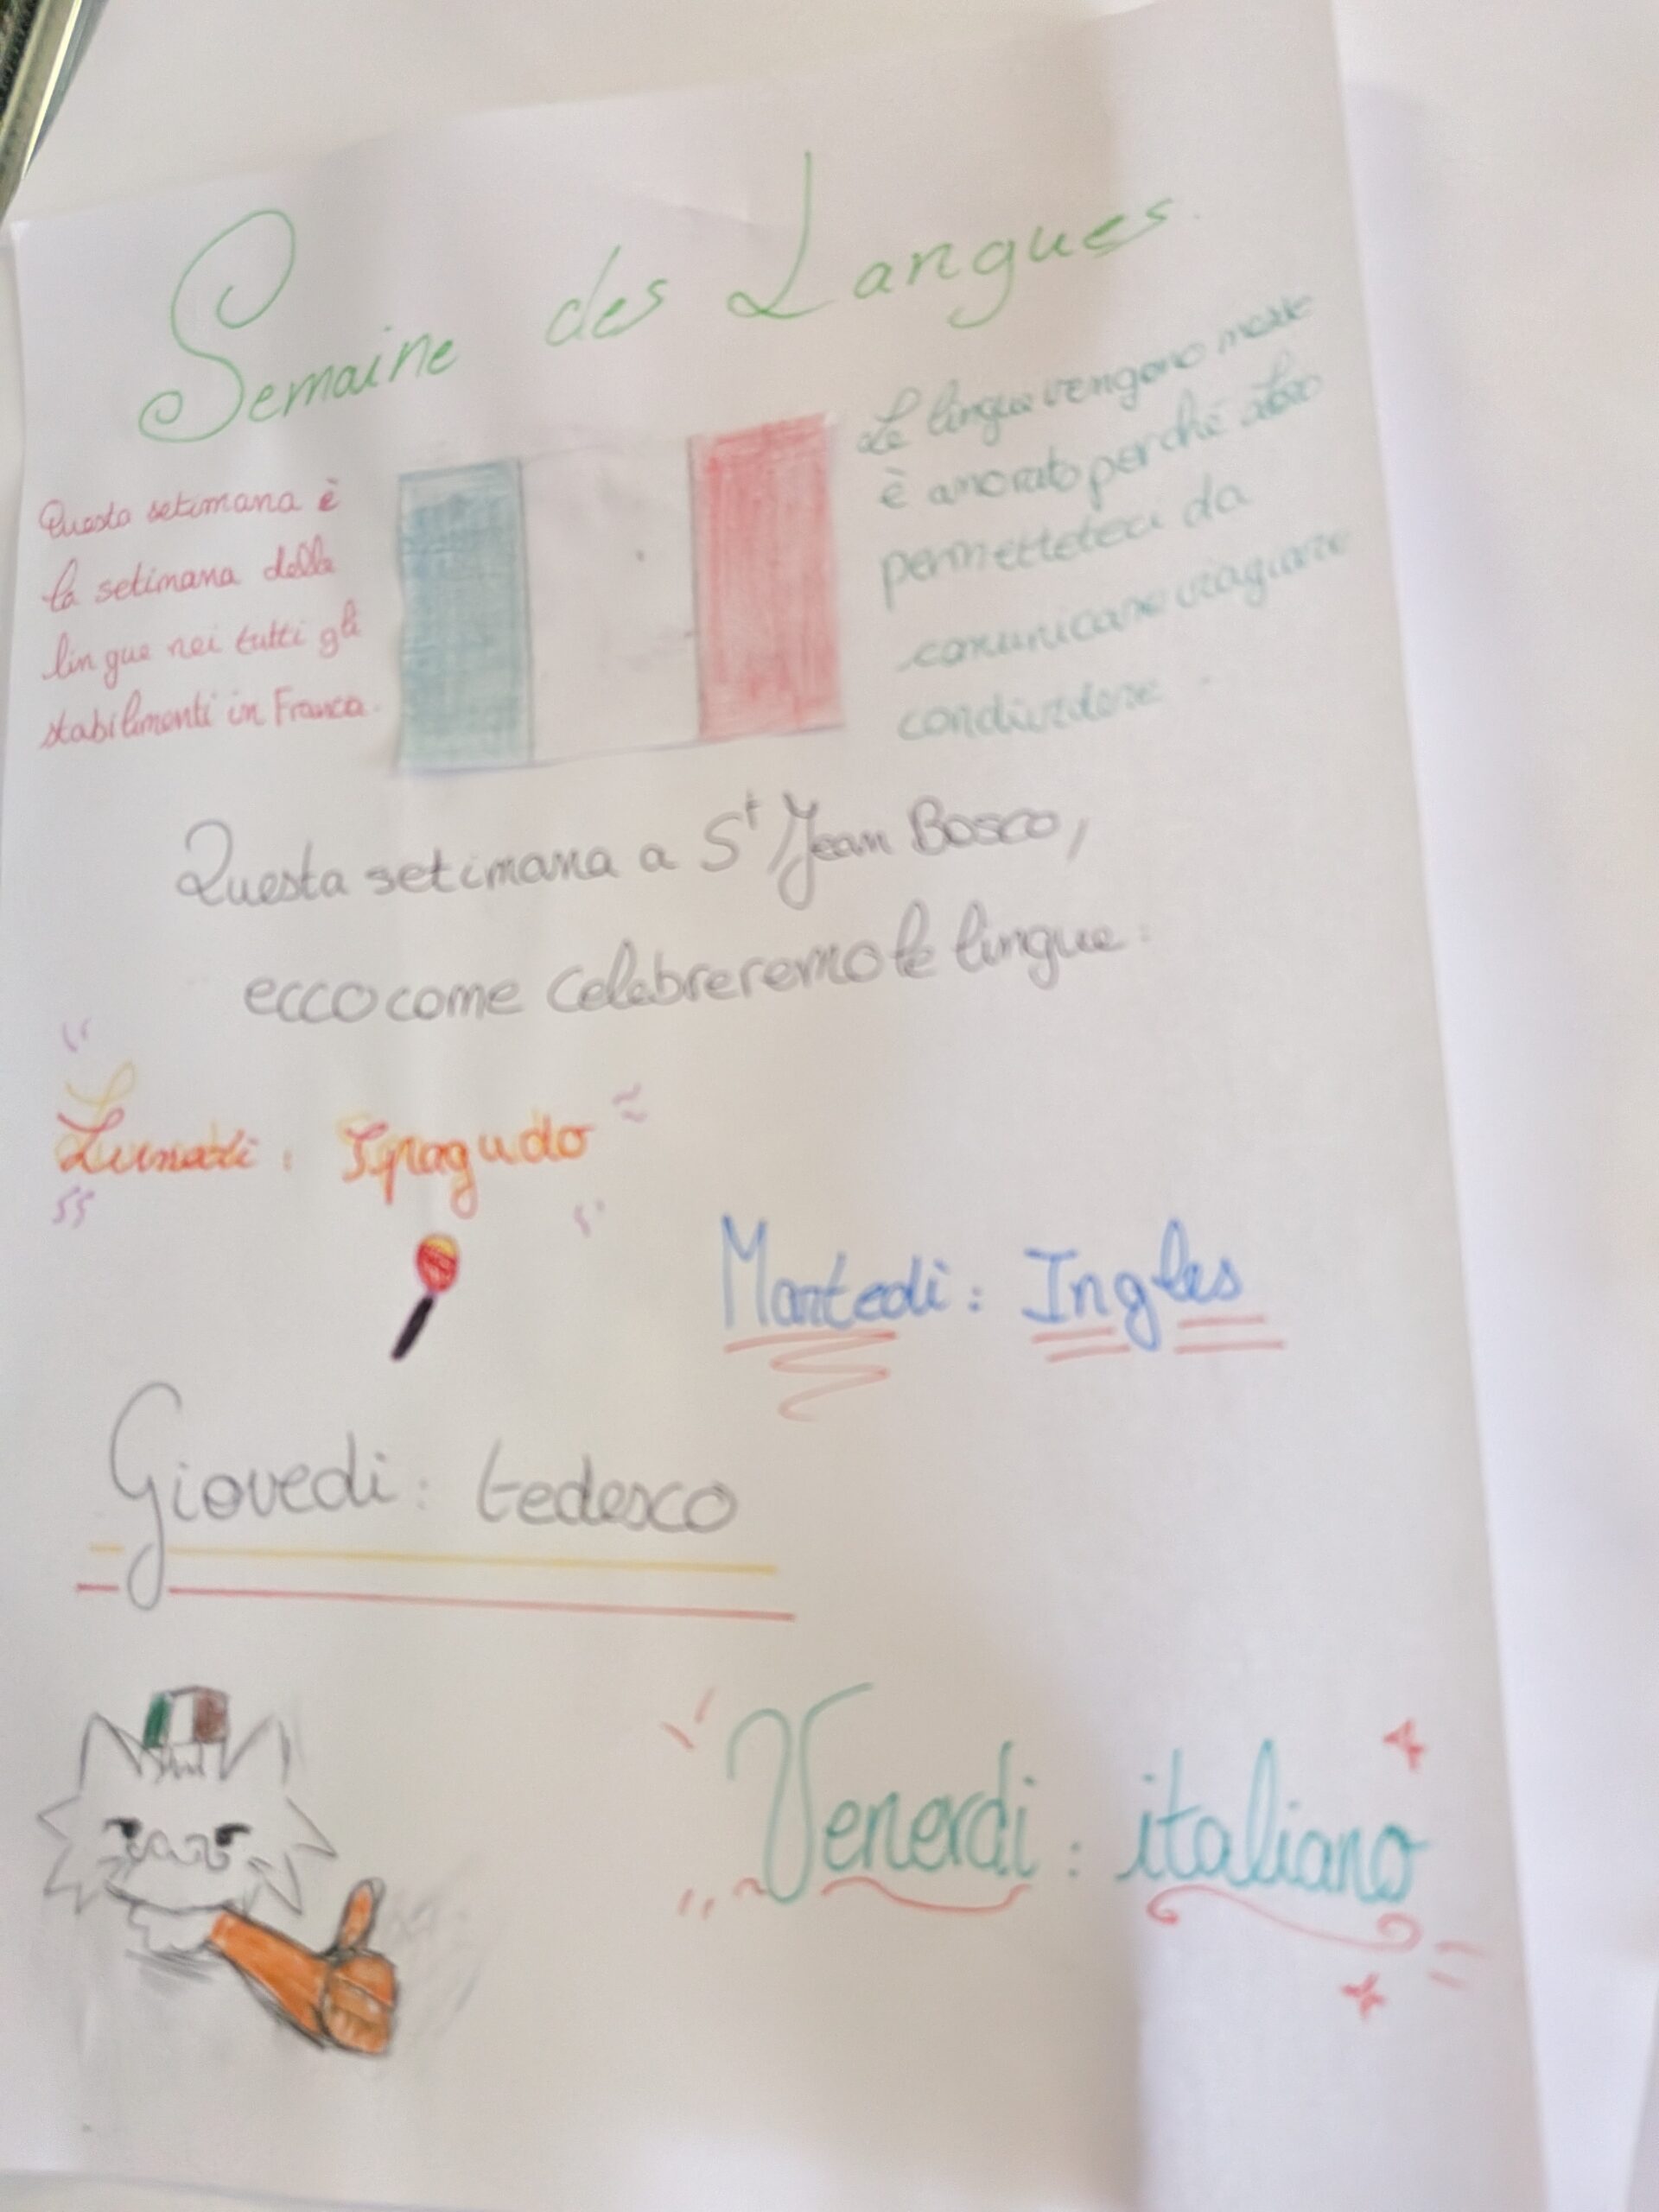 Semaine des Langues.
Questa setimana è
la setimana delle
lingue nei tutti gli
stabilimenti in Franca.
Le lingue vengono messe
è anorato perché
permetteteci da
comunicare viagiare
condividere
Questa setimana a St Jean Bosco,
ecco come celebreremo le lingue :
Lunedi : Spagudo
Martedi : Ingles
Giovedi : tedesco
Venerdi : italiano